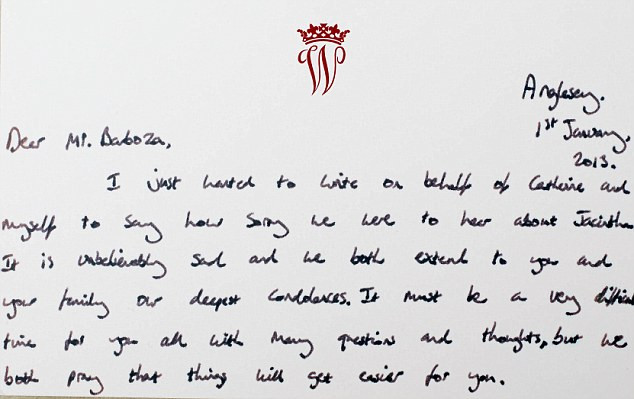 W
Anglesey.
1st January,
2013.
Dear Mr. Barboza,
I just wanted to write on behalf of Catherine and
myself to say how sorry we were to hear about Jacintha
It is unbelievably sad and we both extend to you and
your family our deepest condolences. It must be a very difficult
time for you all with many questions and thoughts, but we
both pray that things will get easier for you.